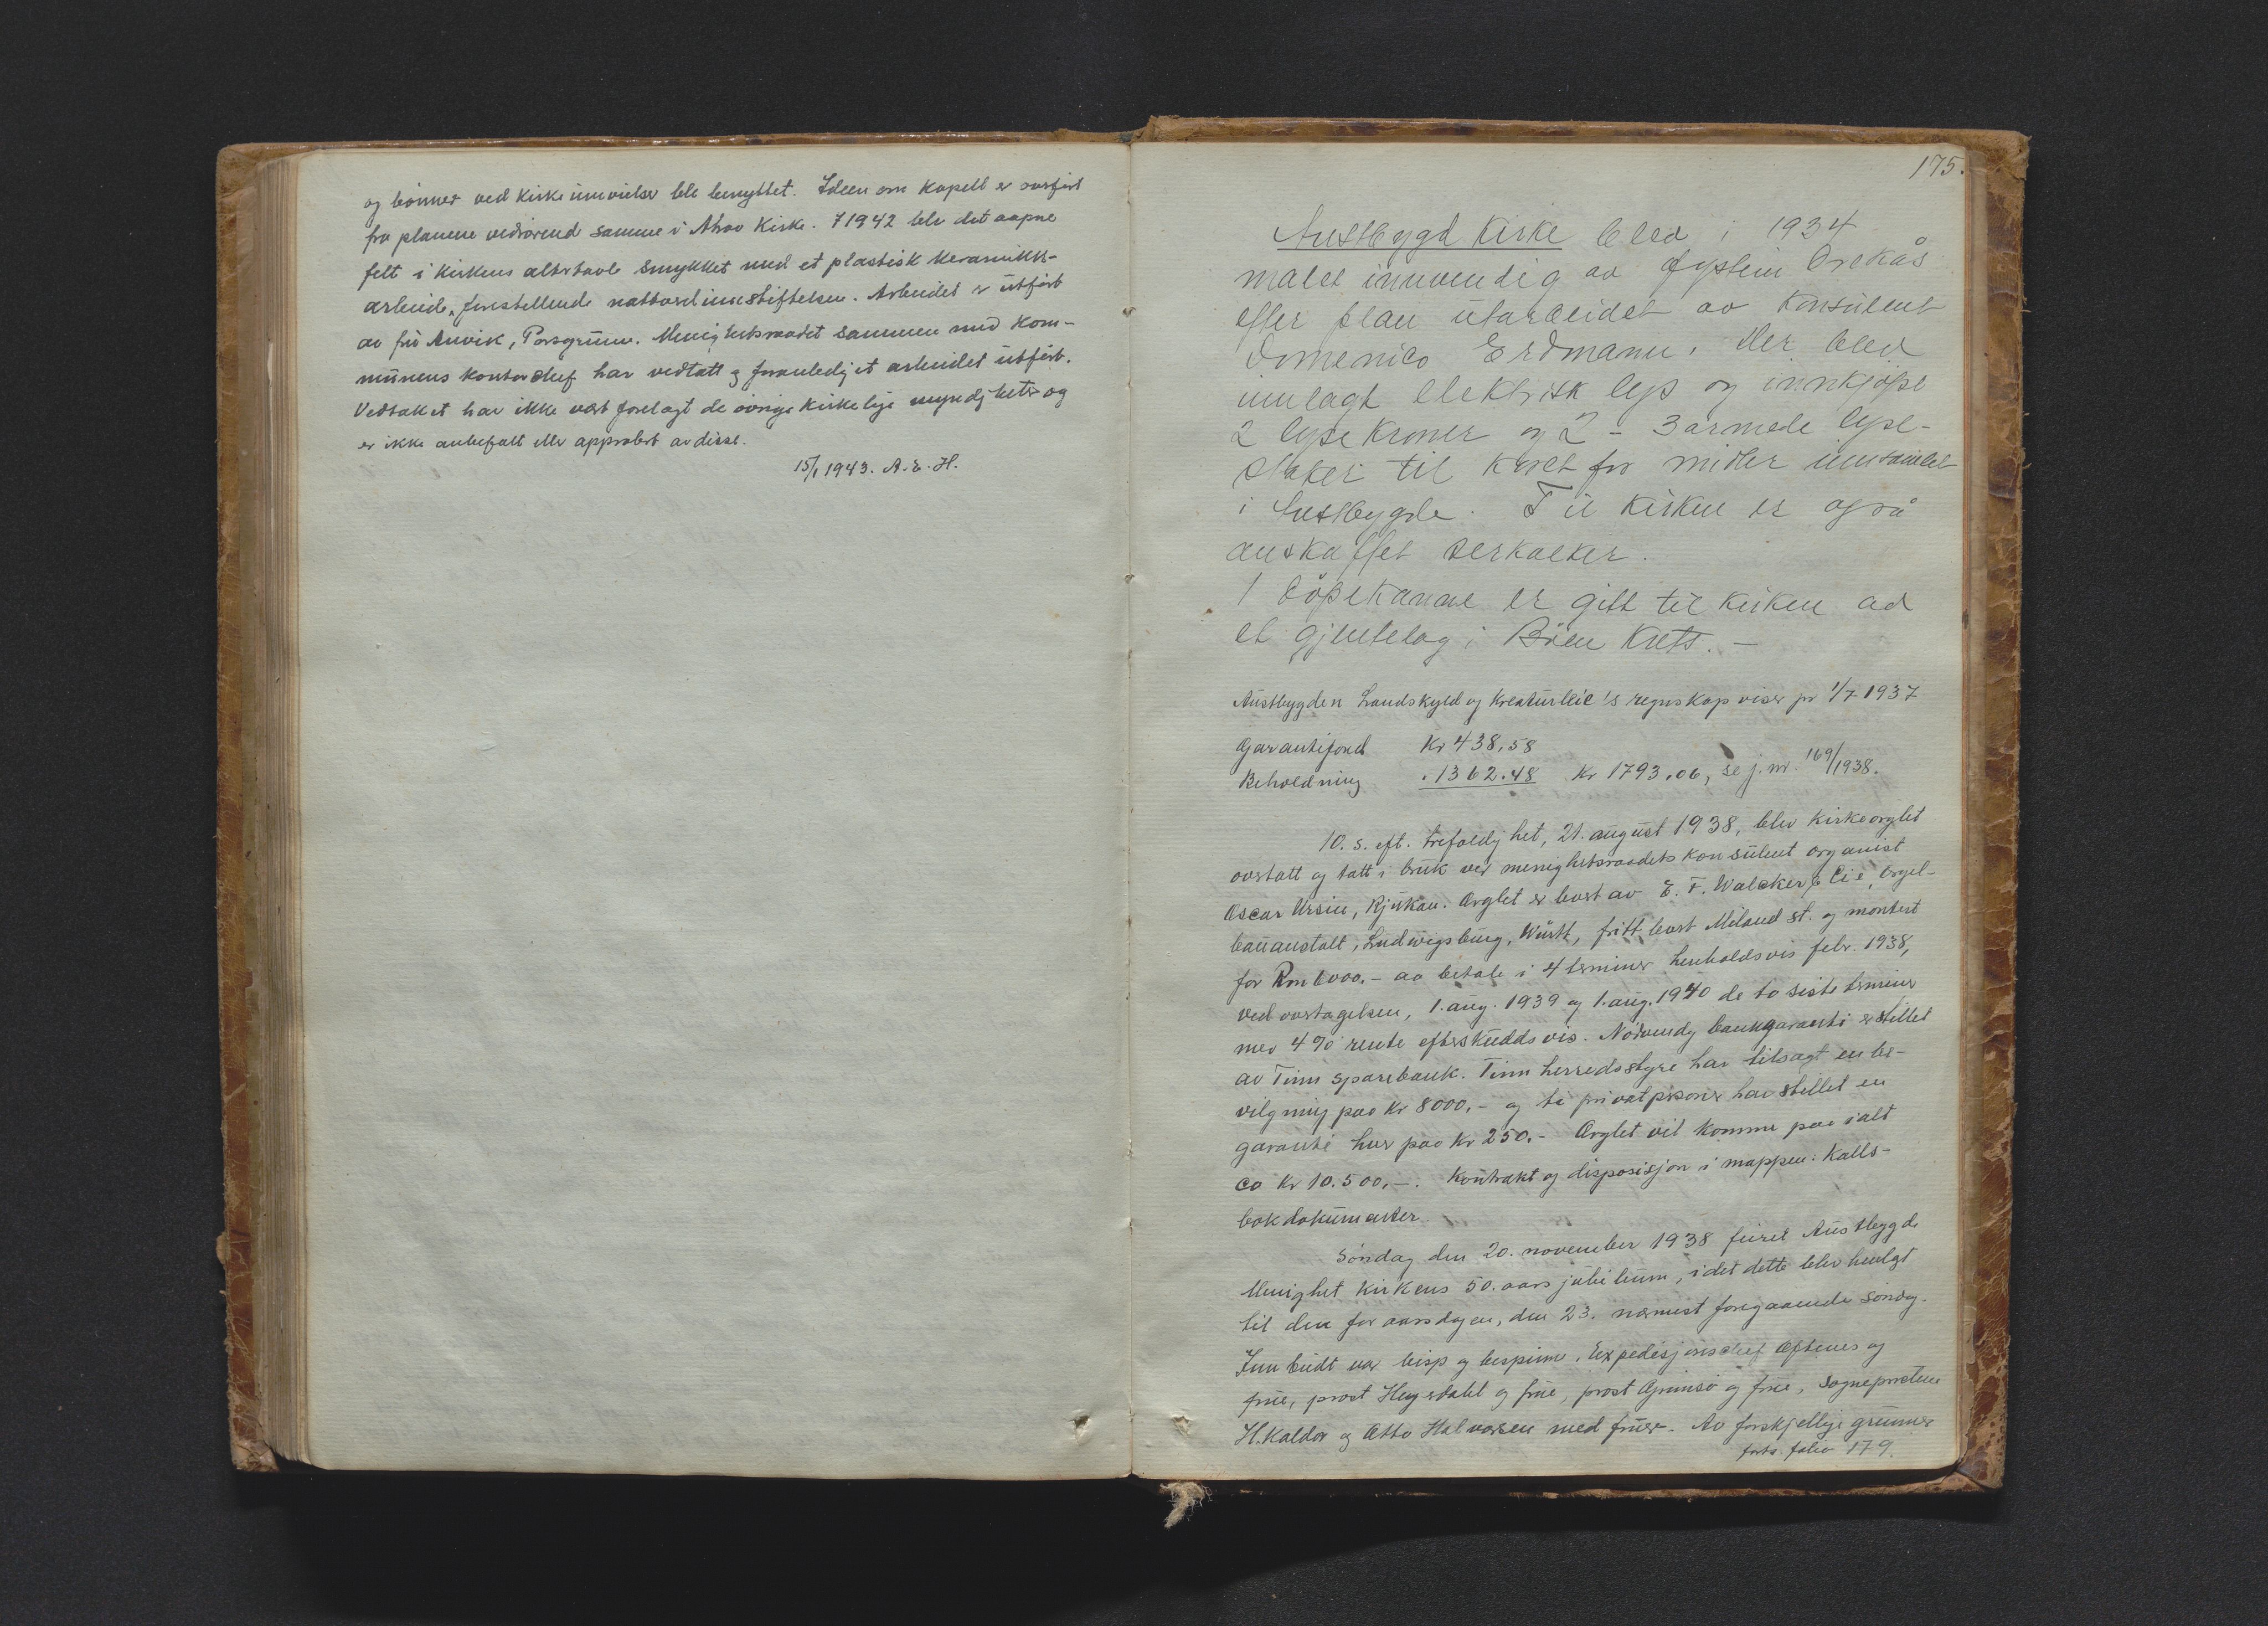 og bönner ved kirkeinnvielser ble benyttet. Ideen om kapell er overfört
fra planene vedrörend samme i Atraa Kirke. I 1942 blev det aapne
felt i kirkens altertavle smykket med et plastisk keramikk-
arbeide, forestellende nattverdinnstiftelsen. Arbeidet er utfört
av frö Anvik, Porsgrunn. Menighetsraadet sammen med kom-
munens kontorchef har vedtatt og foranledig et arbeidet utfört.
Vedtaket har ikke vært forelagt de övrige kirkelige myndigheter og
er ikke anbefalt eller approbert av disse.
15/1 1943. A.E.H.
175.
Austbygd Kirke blev i 1934
malet innvendig av Øystein Orekås
efter plan utarbeidet av Konsulent
Domenico Erdmann. Der blev
innlagt elektrisk lys og innkjöpt
2 lysekroner og 2 - 3 armede lyse-
staker til koret for midler innsamlet
i Austbygde. Til kirken er også
anskaffet særkalker.
1 döpekanne er gitt til kirken av
et gjentelag i Böen krets. -
Austbygden Landskyld og Kreaturleie's regnskap viser pr 1/7 1937
Garantifond Kr 438,58
Beholdning " 1362.48 Kr 1793.06, se j.nr 169/1938.
10. s. eft. trefoldighet, 21. august 1938, blev kirkeorglet
overtatt og tatt i bruk ved menighetsraadets konsulent organist
Oscar Ursin, Rjukan. Orglet er levert av E. F. Walcker & Cie, Orgel-
bauanstalt, Ludwigsburg, Württ, fritt levert Miland st. og montert
for Rm 6000.- aa betale i 4 terminer henholdsvis febr. 1938,
ved overtagelsen, 1. aug. 1939 og 1. aug. 1940 de to siste terminer
med 4 % rente efterskuddsvis. Nödvendig bankgaranti er stillet
av Tinn sparebank. Tinn herredsstyre har tilsagt en be-
vilgning paa Kr 8000.- og ti privatpersoner har stillet en
garanti hver paa Kr 250.- Orglet vil komme paa ialt
ca Kr 10.500,-. Kontrakt og disposisjon i mappen: Kalls-
bokdokumenter.
Söndag den 20. november 1938 feiret Austbygde
Menighet kirkens 50. aars jubileum, idet dette blev henlagt
til den for aarsdagen, den 23. nærmest foregaaende söndag.
Innbudt var bisp og bespinne, Expedisjonschef Oftenes og
frue, prost Høgetdahl og frue, prost Grimsö og frue, sogneprestene
H. Kaldor og Otto Halvorsen med fruer. Av forskjellige grunner
forts. folio 179.